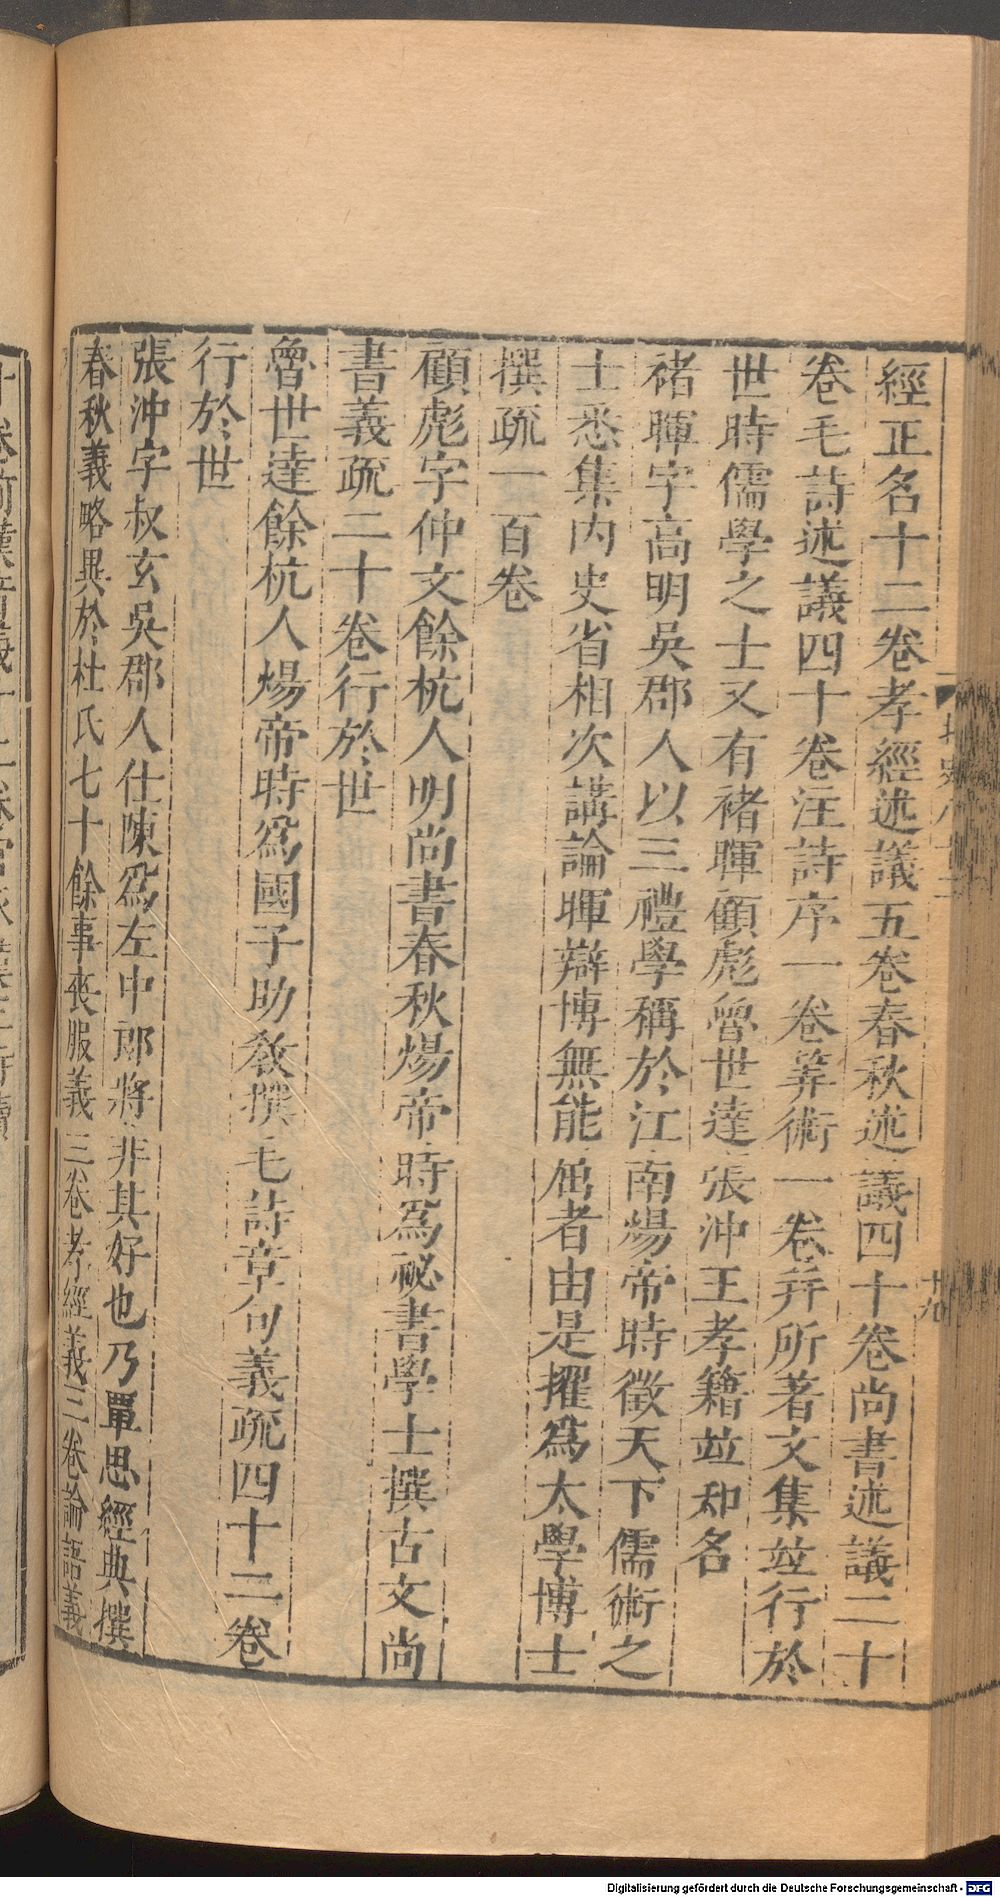 經正名十二卷孝經述議五卷春秋述議四十卷尚書述議二十
卷毛詩述議四十卷注詩序一卷筭術一卷并所著文集竝行於
世時儒學之士又有褚暉顧彪魯世達張沖王孝籍竝知名
褚暉字高明吳郡人以三禮學稱於江南煬帝時徵天下儒術之
士悉集内史省相次講論暉辯博無能屈者由是擢爲太學博士
撰疏一百卷
顧彪字仲文餘杭人明尚書春秋煬帝時爲祕書學士撰古文尚
書義疏二十卷行於世
魯世達餘杭人煬帝時爲國子助敎撰毛詩章句義疏四十二卷
行於世
張沖字叔玄吳郡人仕陳爲左中郎將非其好也乃覃思經典撰
春秋義略異於杜氏七十餘事喪服義三卷孝經義三卷論語義
Digitalisierung gefördert durch die Deutsche Forschungsgemeinschaft - DFG